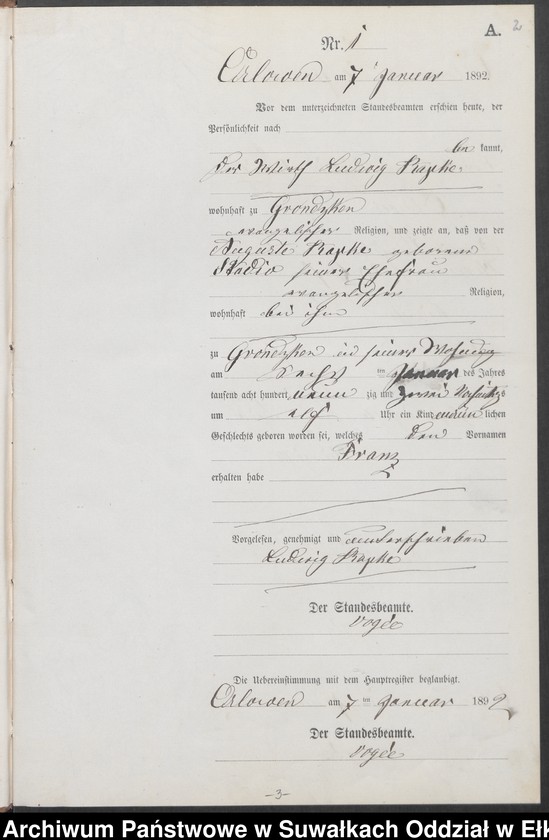 A. 2
Nr. 1
Orlowen am 7 Januar 1892.
Vor dem unterzeichneten Standesbeamten erschien heute, der
Persönlichkeit nach
be kannt,
der Wirth Ludwig Rapke
wohnhaft zu Grondzken
evangelischer Religion, und zeigte an, daß von der
Auguste Rapke geborene
seiner Ehefrau
evangelischer Religion,
wohnhaft bei ihm
zu Grondzken in seiner Wohnung
am sechs ten Januar des Jahres
tausend acht hundert neun zig und zwei Vormittags
um elf Uhr ein Kind männ lichen
Geschlechts geboren worden sei, welches den Vornamen
Franz
erhalten habe
Vorgelesen, genehmigt und unterschrieben
Ludwig Rapke
Der Standesbeamte.
Vogée
Die Uebereinstimmung mit dem Hauptregister beglaubigt.
Orlowen am 7 ten Januar 1892
Der Standesbeamte.
Vogée
-3-
Archiwum Państwowe w Suwałkach Oddział w Ełk